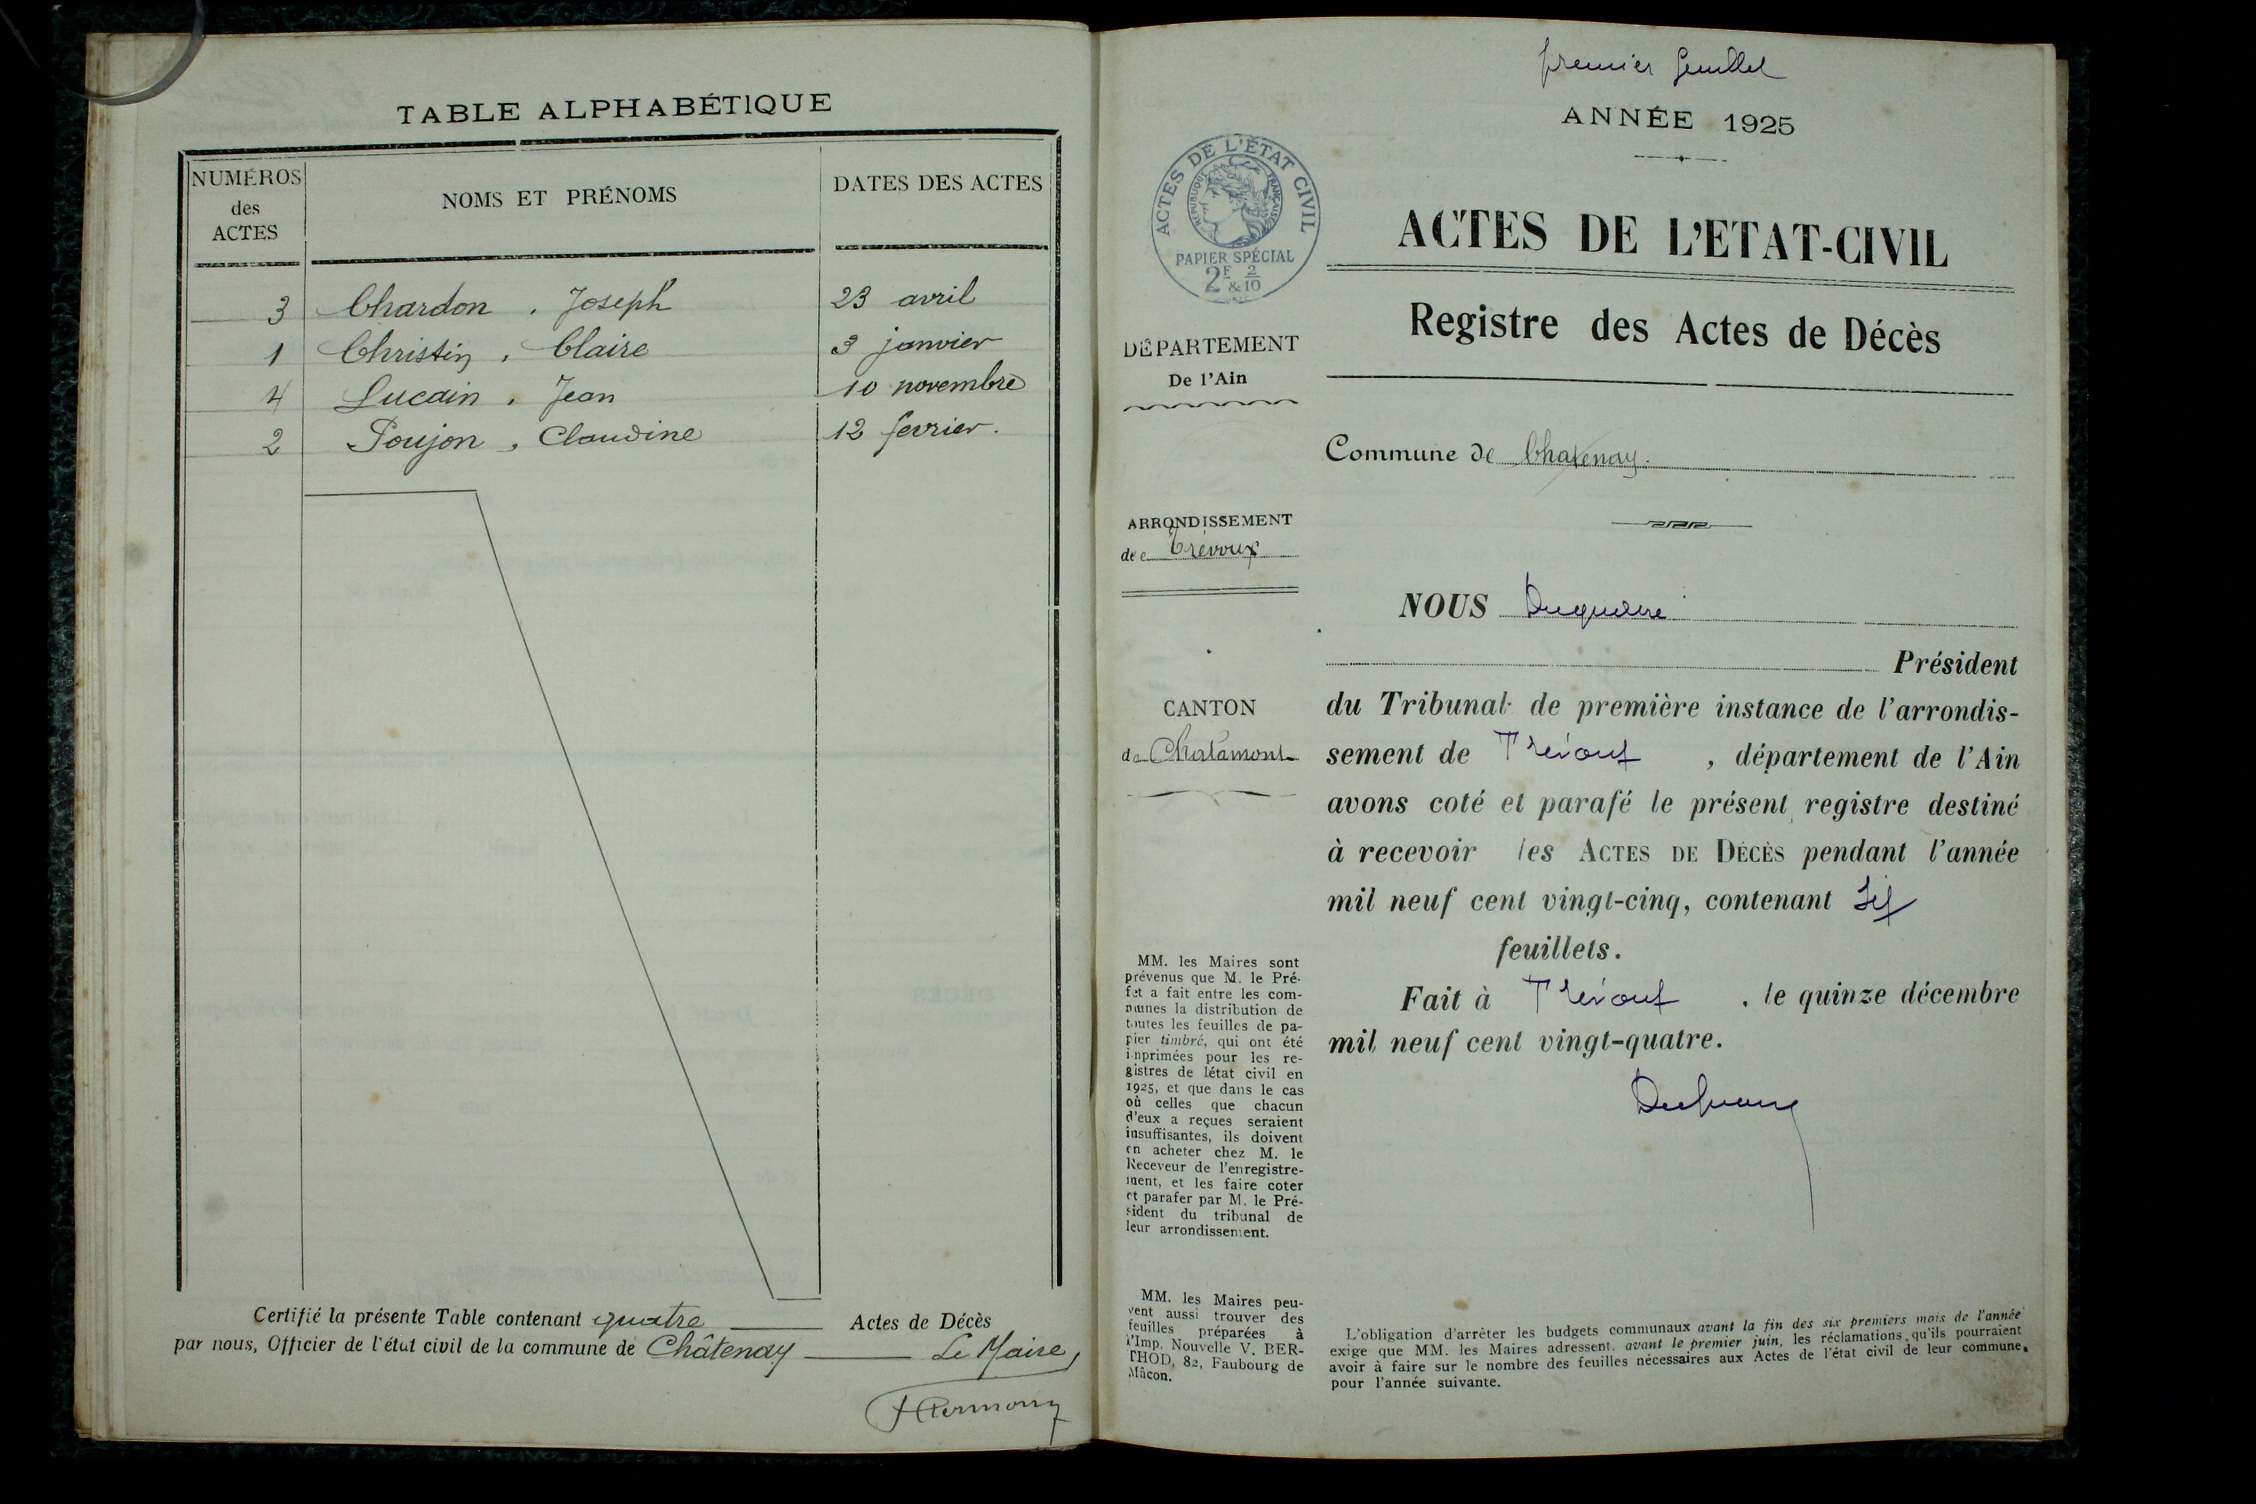 TABLE ALPHABÉTIQUE
NUMÉROS
des
ACTES
NOMS ET PRÉNOMS
DATES DES ACTES
3 Chardon, Joseph 23 avril
1 Christin, Claire 3 janvier
4 Lucain, Jean 10 novembre
2 Poujon, Claudine 12 fevrier.
Certifié la présente Table contenant quatre Actes de Décès
par nous, Officier de l'état civil de la commune de Châtenay Le Maire,
premier feuillet
ANNÉE 1925
ACTES DE L'ÉTAT CIVIL
RÉPUBLIQUE FRANÇAISE
PAPIER SPÉCIAL
2F & 2/10
ACTES DE L'ETAT-CIVIL
Registre des Actes de Décès
DÉPARTEMENT
De l'Ain
Commune de Chatenay.
ARRONDISSEMENT
de Trévoux
CANTON
de Chalamont
NOUS
Président
du Tribunal de première instance de l'arrondis-
sement de Trévoux, département de l'Ain
avons coté et parafé le présent registre destiné
à recevoir les ACTES DE DÉCÈS pendant l'année
mil neuf cent vingt-cinq, contenant Six
feuillets.
Fait à Trévoux, le quinze décembre
mil neuf cent vingt-quatre.
MM. les Maires sont
prévenus que M. le Pré-
fet a fait entre les com-
munes la distribution de
toutes les feuilles de pa-
pier timbré, qui ont été
imprimées pour les re-
gistres de létat civil en
1925, et que dans le cas
où celles que chacun
d'eux a reçues seraient
insuffisantes, ils doivent
en acheter chez M. le
Receveur de l'enregistre-
ment, et les faire coter
et parafer par M. le Pré-
sident du tribunal de
leur arrondissement.
MM. les Maires peu-
vent aussi trouver des
feuilles préparées à
l'Imp. Nouvelle V. BER-
THOD, 82, Faubourg de
Mâcon.
L'obligation d'arrêter les budgets communaux avant la fin des six premiers mois de l'année
exige que MM. les Maires adressent, avant le premier juin, les réclamations qu'ils pourraient
avoir à faire sur le nombre des feuilles nécessaires aux Actes de l'état civil de leur commune,
pour l'année suivante.